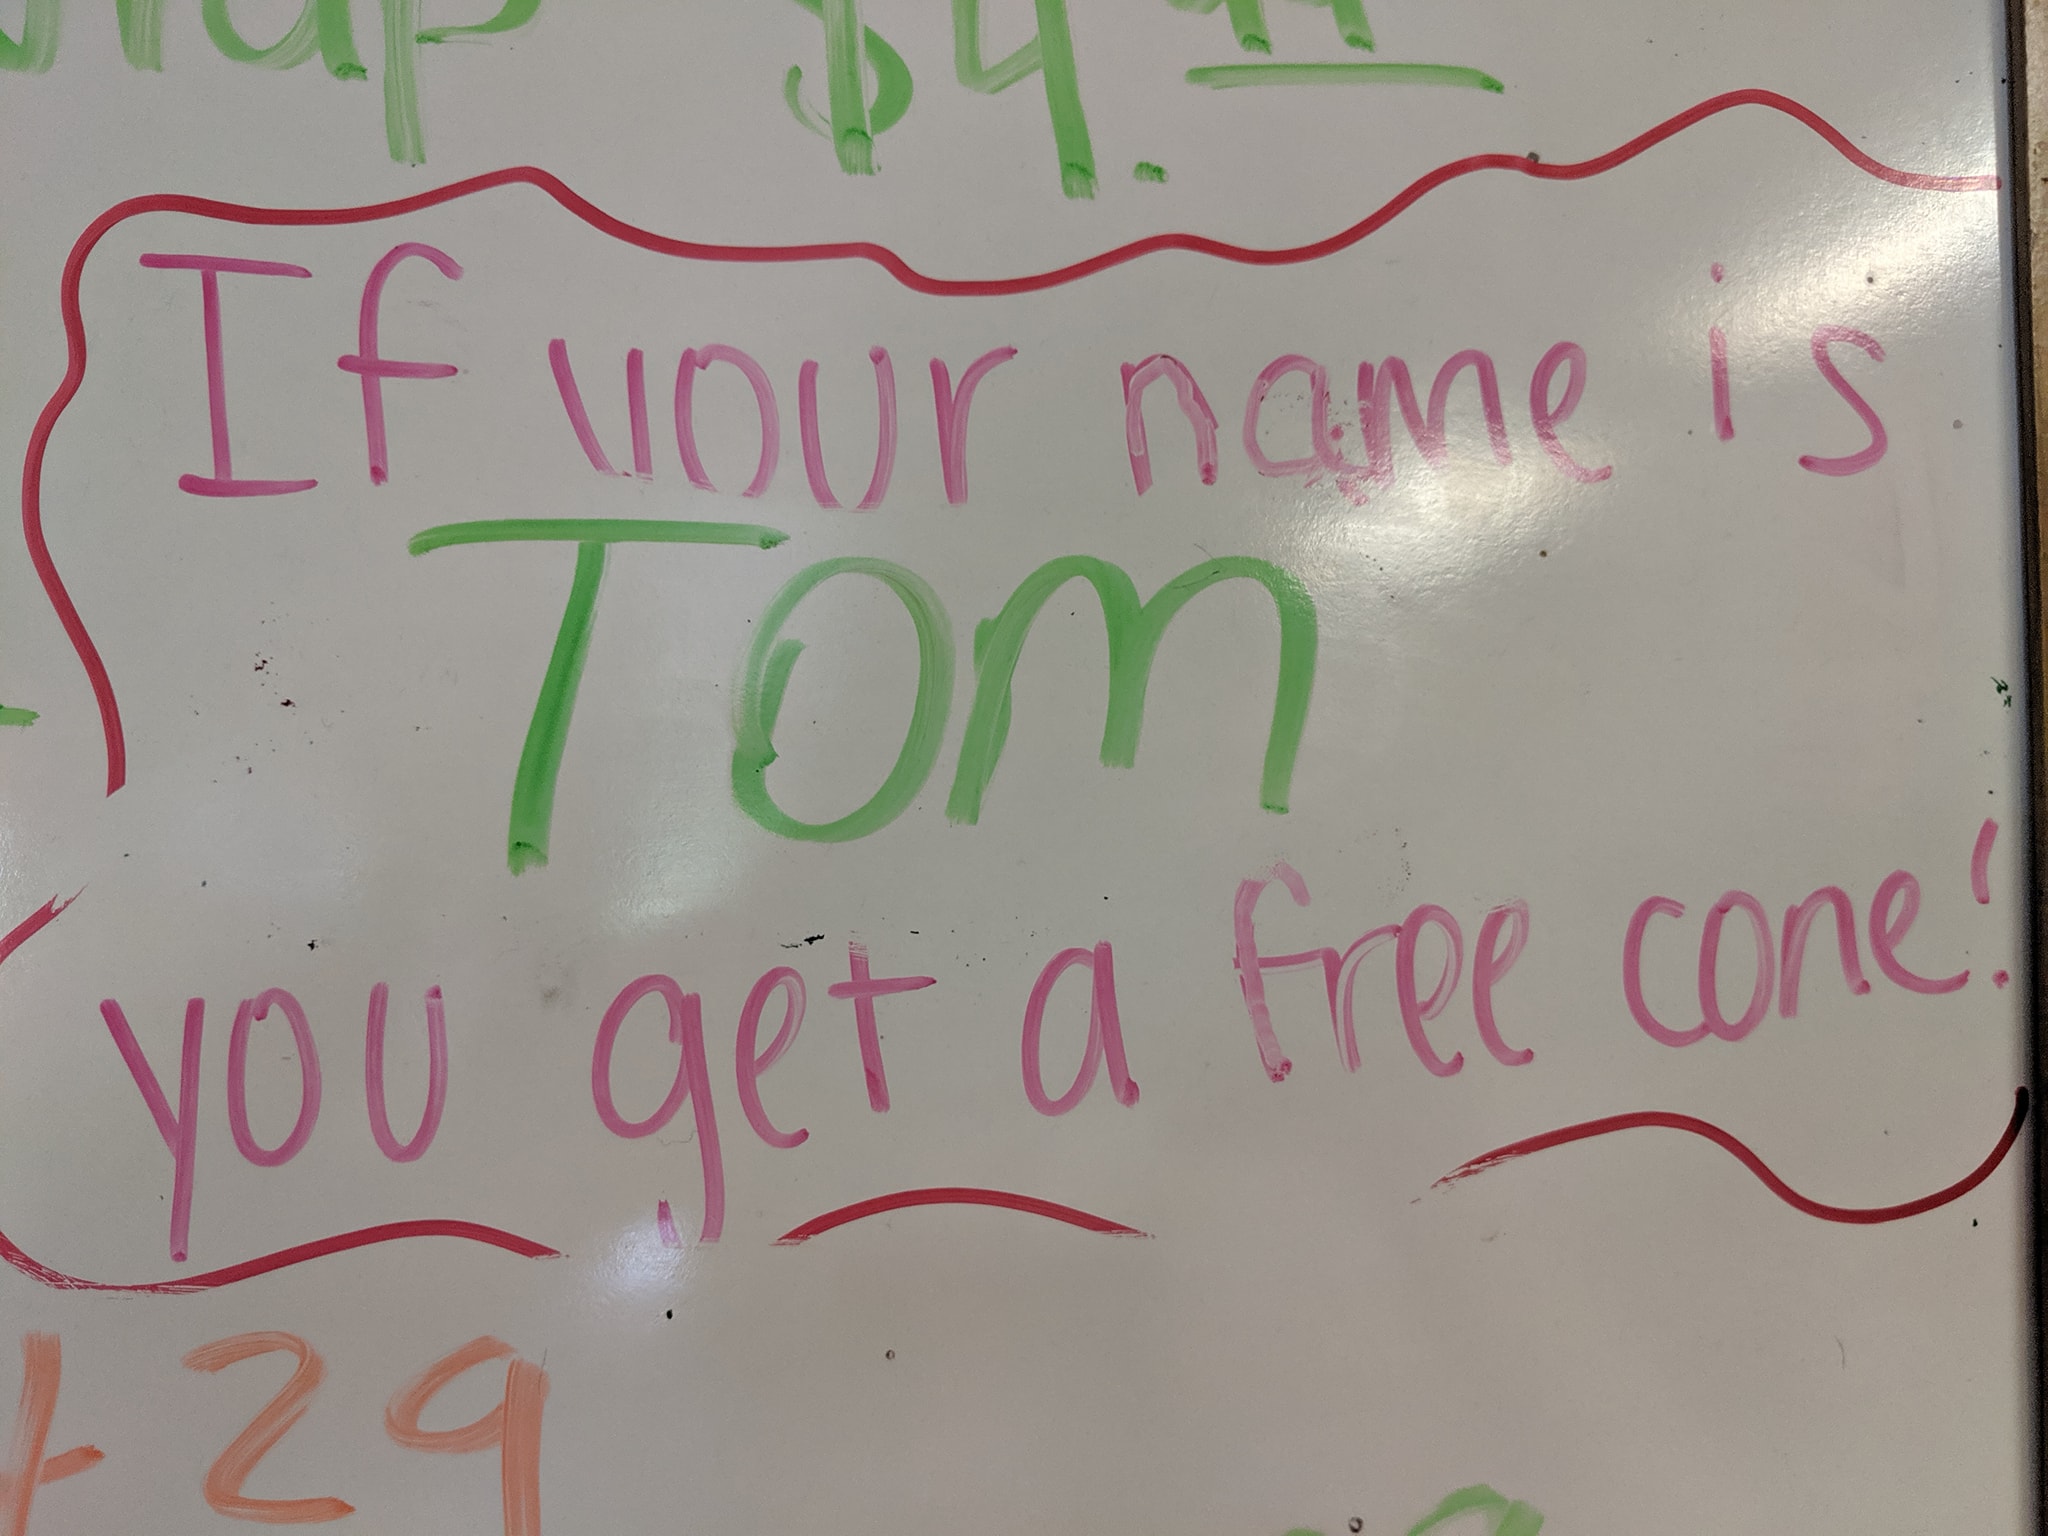 $4.
If your name is
Tom
you get a free cone!
29